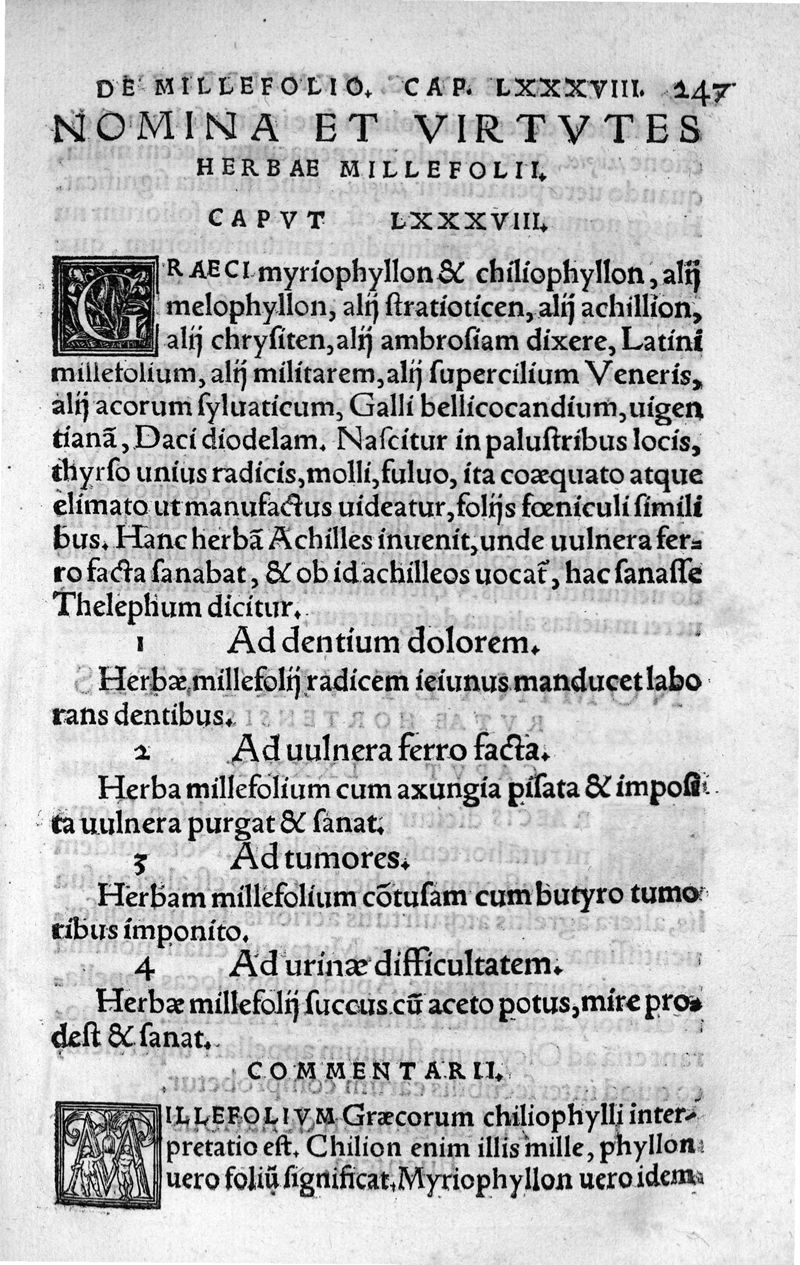 DE MILLEFOLIO. CAP. LXXXVIII. 247
NOMINA ET VIRTVTES
HERBAE MILLEFOLII.
CAPVT LXXXVIII.
GRAECI myriophyllon & chiliophyllon, alij
melophyllon, alij ſtratioticen, alij achillion,
alij chryſiten, alij ambroſiam dixere, Latini
millefolium, alij militarem, alij ſupercilium Veneris,
alij acorum ſyluaticum, Galli bellicocandium, uigen
tianã, Daci diodelam. Naſcitur in paluſtribus locis,
thyrſo unius radicis, molli, fuluo, ita coæquato atque
elimato ut manufactus uideatur, folijs fœniculi ſimili
bus. Hanc herbã Achilles inuenit, unde uulnera fer-
ro facta ſanabat, & ob id achilleos uocat̃, hac ſanaſſe
Thelephum dicitur.
1 Ad dentium dolorem.
Herbæ millefolij radicem ieiunus manducet labo
rans dentibus.
2 Ad uulnera ferro facta.
Herba millefolium cum axungia piſata & impoſi
ta uulnera purgat & ſanat.
3 Ad tumores.
Herbam millefolium cõtuſam cum butyro tumo
ribus imponito.
4 Ad urinæ difficultatem.
Herbæ millefolij ſuccus cũ aceto potus, mire pro-
deſt & ſanat.
COMMENTARII.
MILLEFOLIVM Græcorum chiliophylli inter-
pretatio eſt. Chilion enim illis mille, phyllon
uero foliũ ſignificat. Myriophyllon uero idem